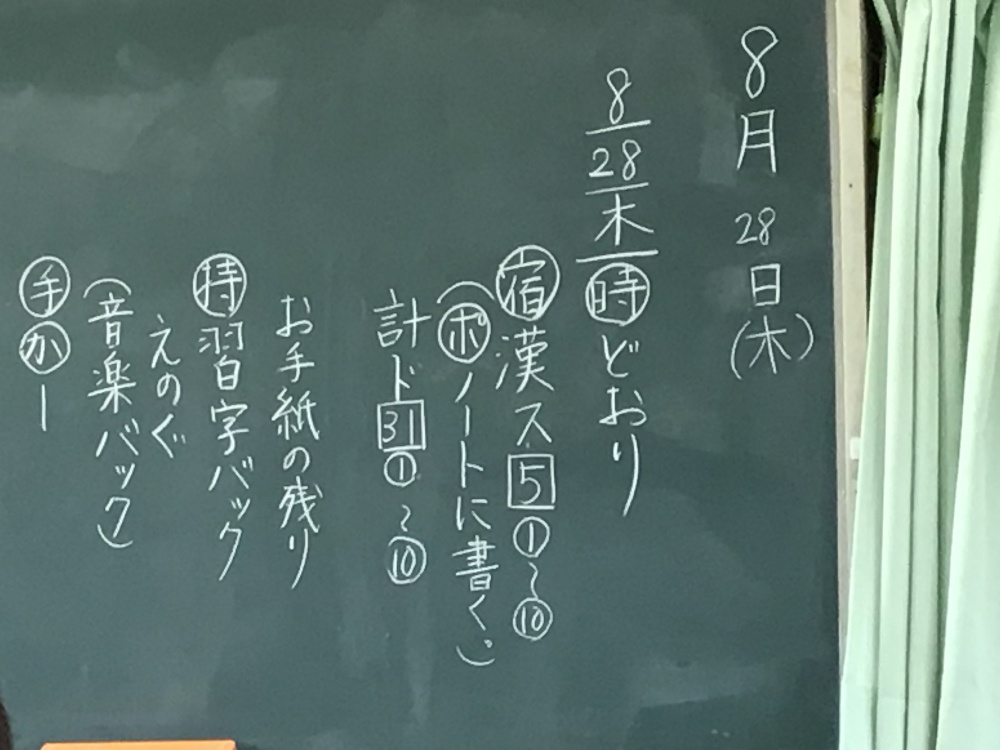 8月28日(木)
8/28木 ㊙時どおり
宿 漢ス5①〜⑩
(ポノートに書く。)
計ド31①〜⑩
お手紙の残り
持 習字バック
えのぐ
(音楽バック)
手 か ー